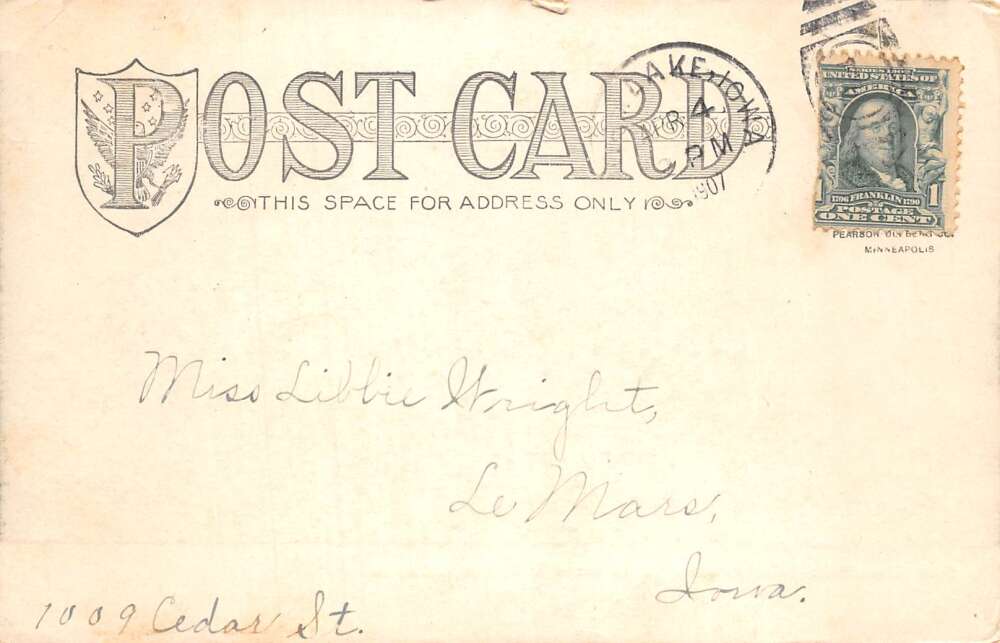 POST CARD
THIS SPACE FOR ADDRESS ONLY
LAKE, IOWA
APR 4
PM
1907
SERIES 1902
UNITED STATES OF
AMERICA
1706 FRANKLIN 1790
POSTAGE
ONE CENT
1
PEARSON
MINNEAPOLIS
Miss Libbie Wright,
Le Mars,
Iowa.
1009 Cedar St.